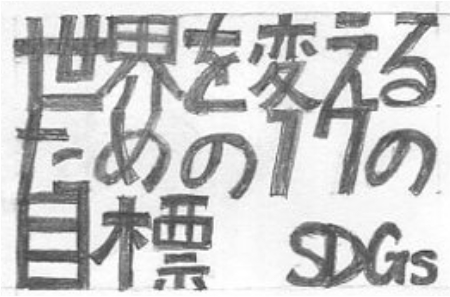 世界を変える
ための17の
目標 SDGs